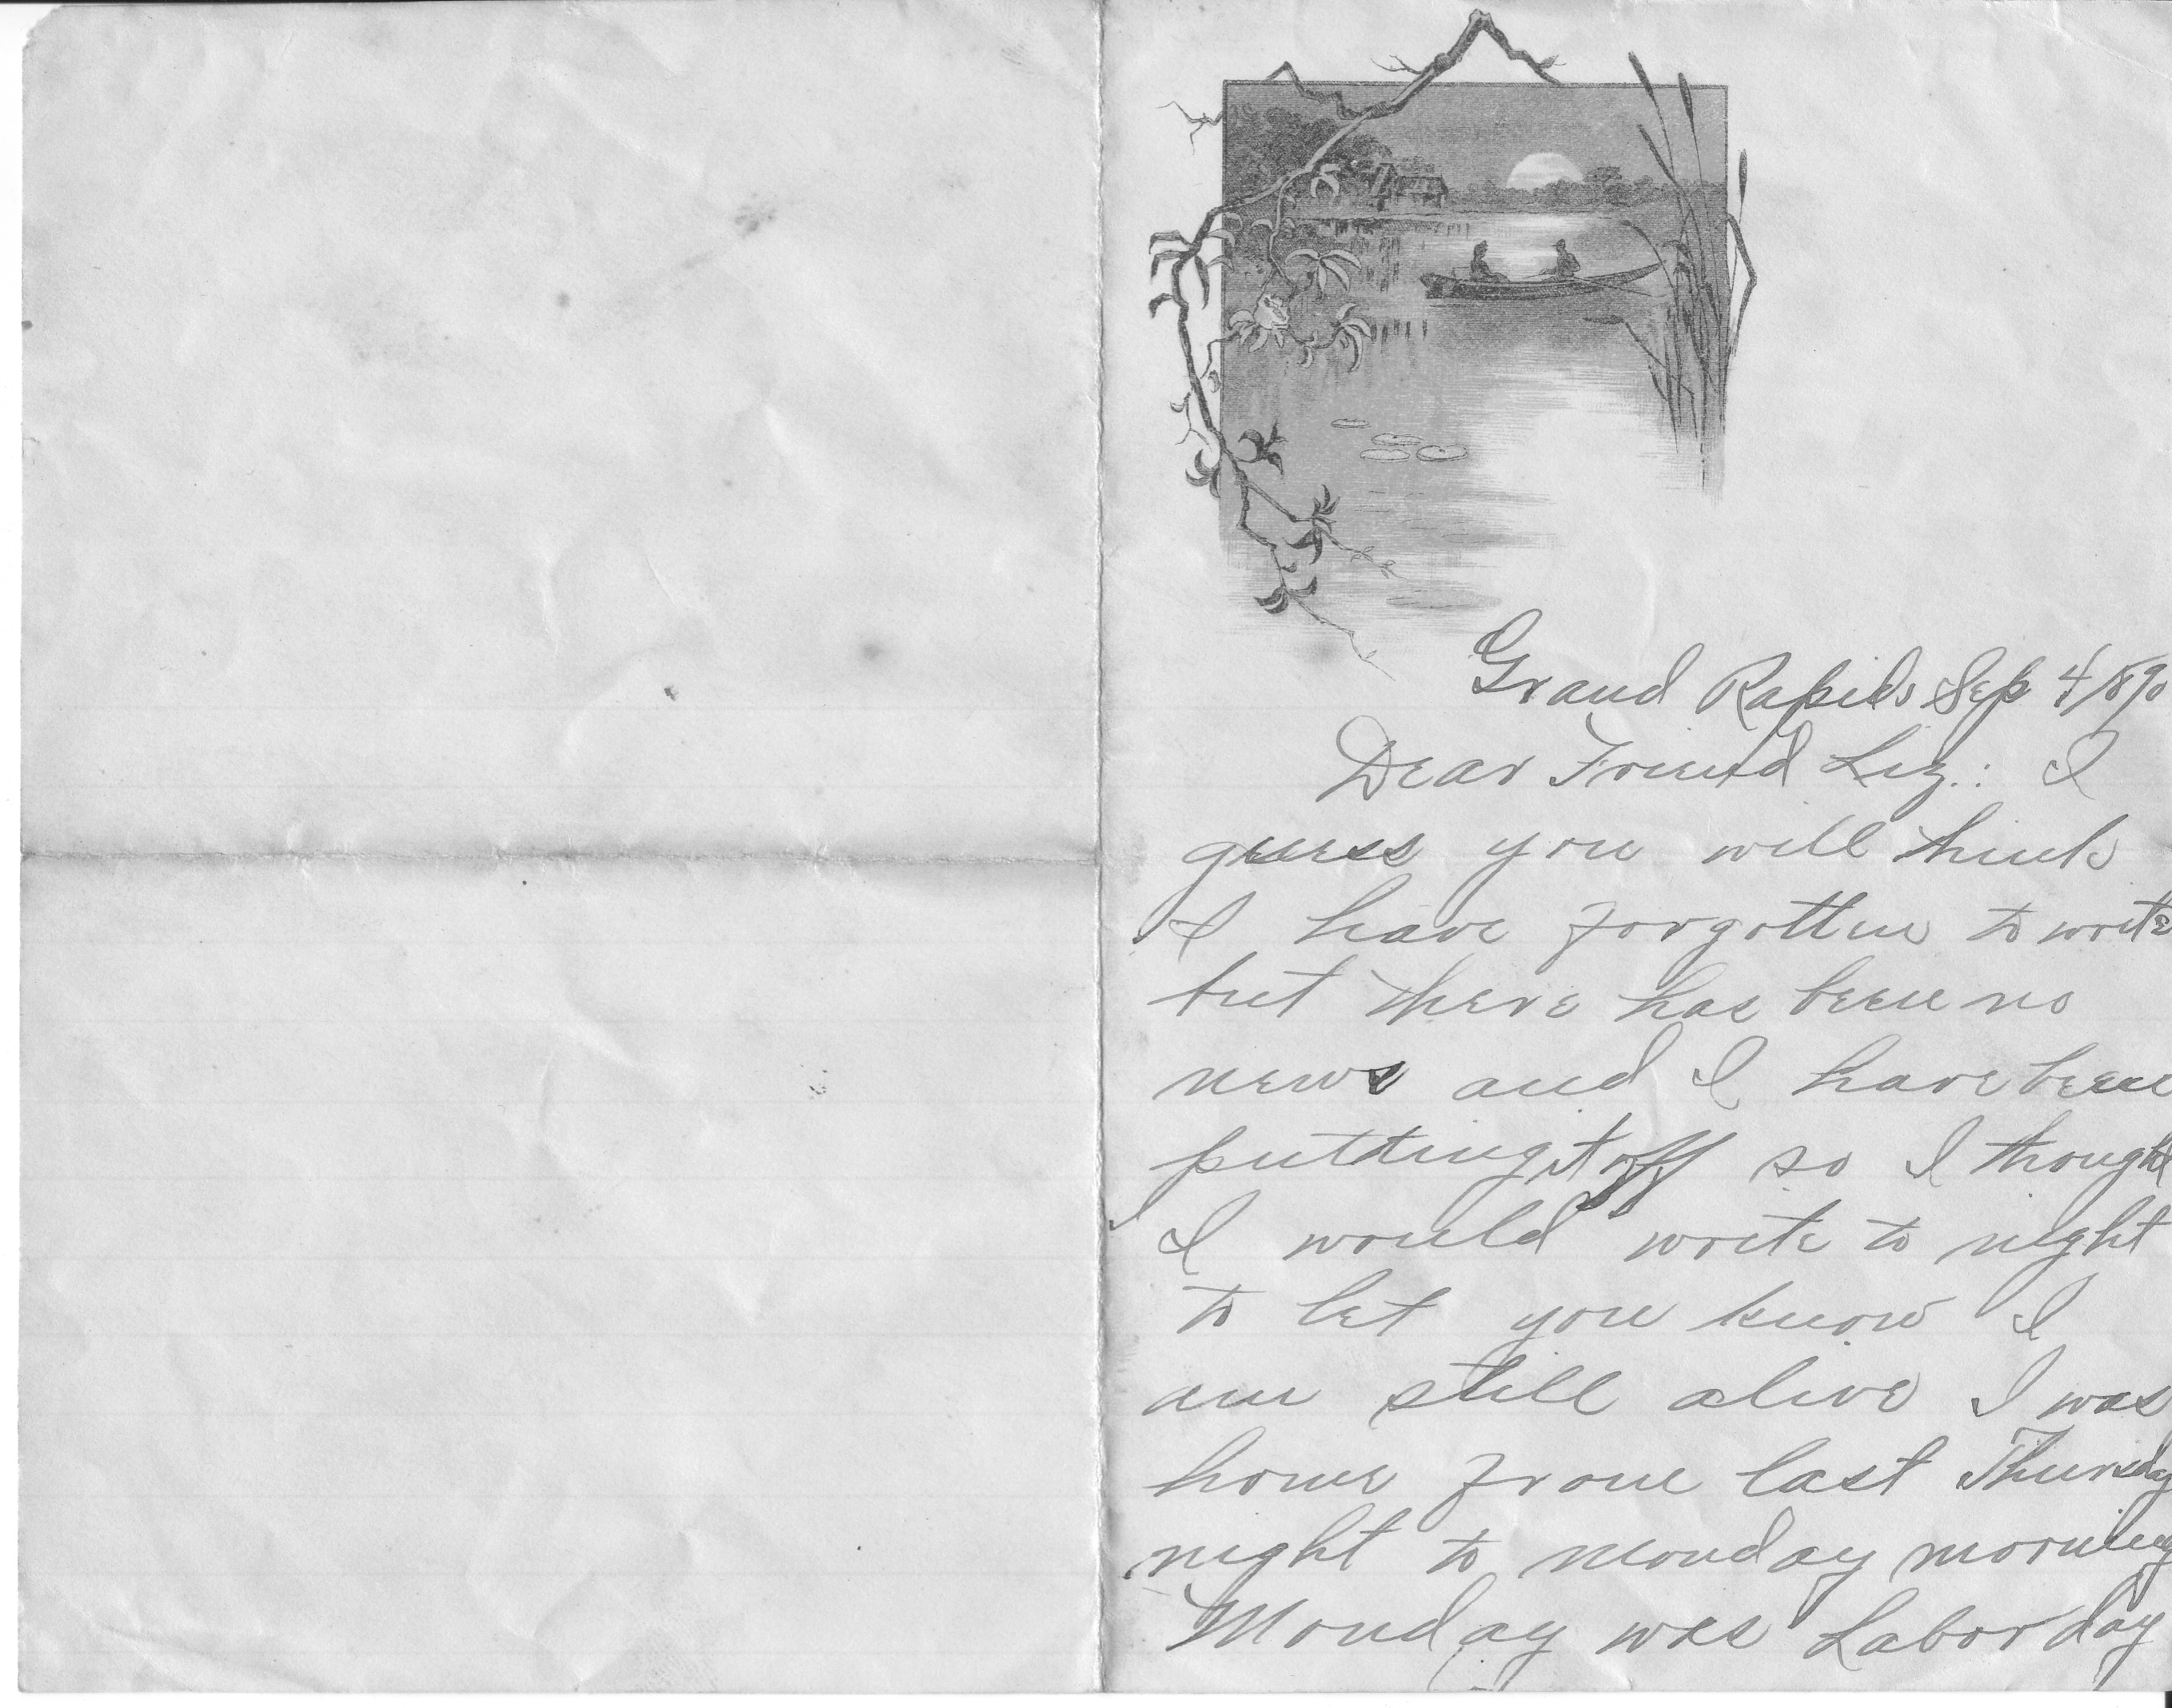 Grand Rapids Sep 4/890
Dear Friend Liz.: I
guess you will think
I have forgotten to write
but there has been no
news and I have been
putting it off so I thought
I would write to night
to let you know I
am still alive I was
home from last Thursday
night to monday morning
Monday was Labor day